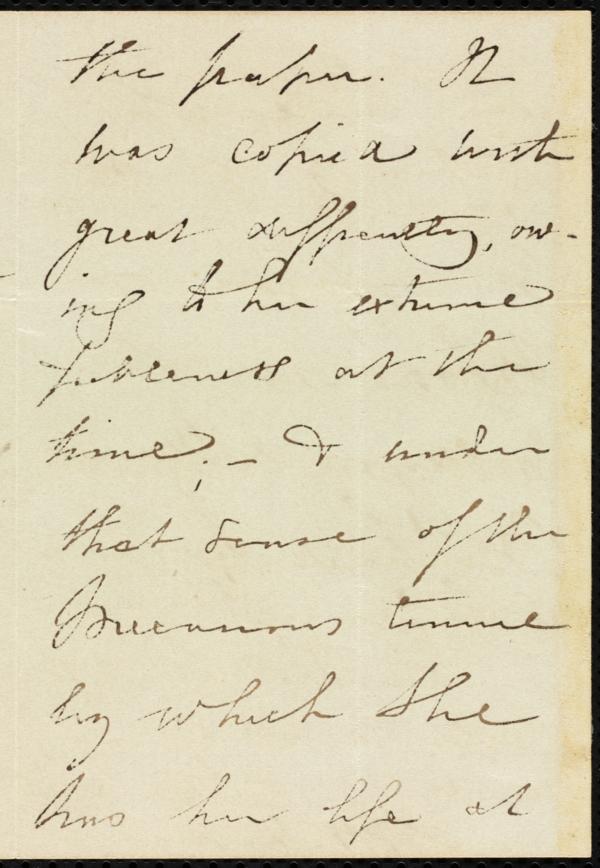 the paper. It
was copied with
great difficulty, ow-
ing to her extreme
feebleness at the
time; — & under
that sense of the
precarious tenure
by which she
has her life at